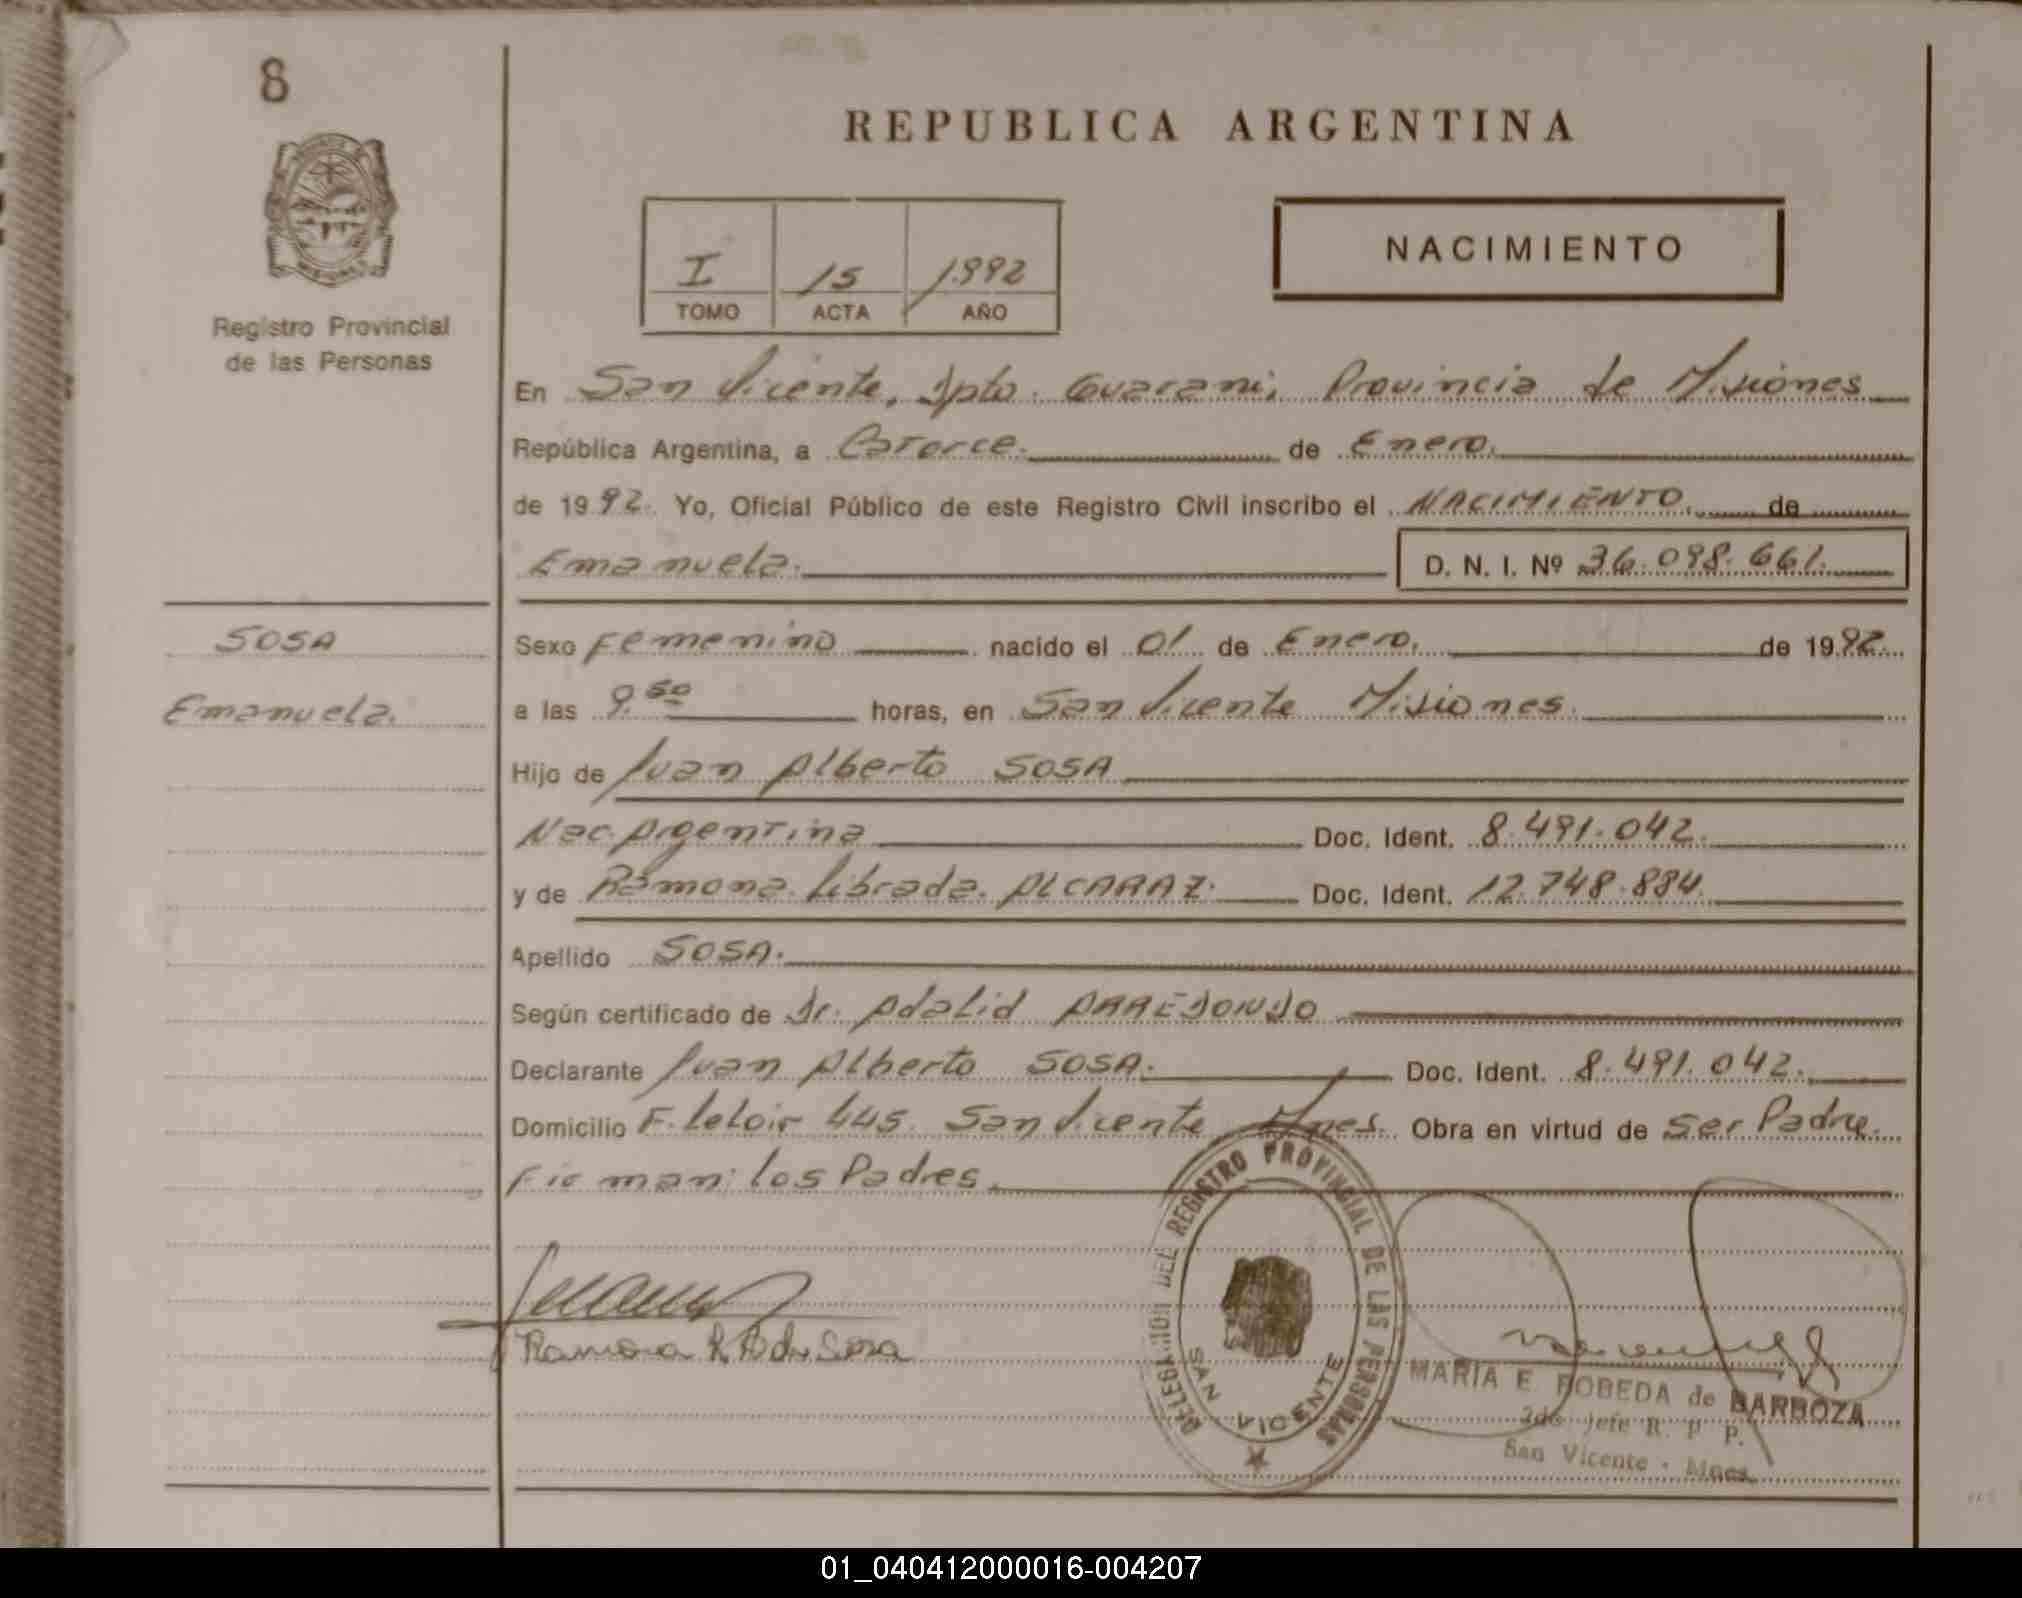 8
REPUBLICA ARGENTINA
NACIMIENTO
I 15 1992
TOMO ACTA AÑO
Registro Provincial
de las Personas
En San Vicente, Dpto. Guarani, Provincia de Misiones
República Argentina, a Catorce. de Enero.
de 1992. Yo, Oficial Público de este Registro Civil inscribo el NACIMIENTO. de
Emanuela. D. N. I. Nº 36.098.661.
SOSA
Emanuela.
Sexo Femenino nacido el 01 de Enero. de 1992.
a las 9.50 horas, en San Vicente Misiones.
Hijo de Juan Alberto SOSA
Nac. Argentina Doc. Ident. 8.491.042.
y de Ramona Librada. ALCARAZ. Doc. Ident. 12.748.884.
Apellido SOSA.
Según certificado de Dr. Adalid ARREDONDO
Declarante Juan Alberto SOSA. Doc. Ident. 8.491.042.
Domicilio F. Leloir 445. San Vicente Mnes. Obra en virtud de Ser Padre.
Firman: los Padres.
Ramona de Sosa
DELEGACION DEL REGISTRO PROVINCIAL DE LAS PERSONAS
SAN VICENTE
MARIA E. POBEDA de BARBOZA
2do Jefe R. P. P.
San Vicente - Mnes.
01_040412000016-004207